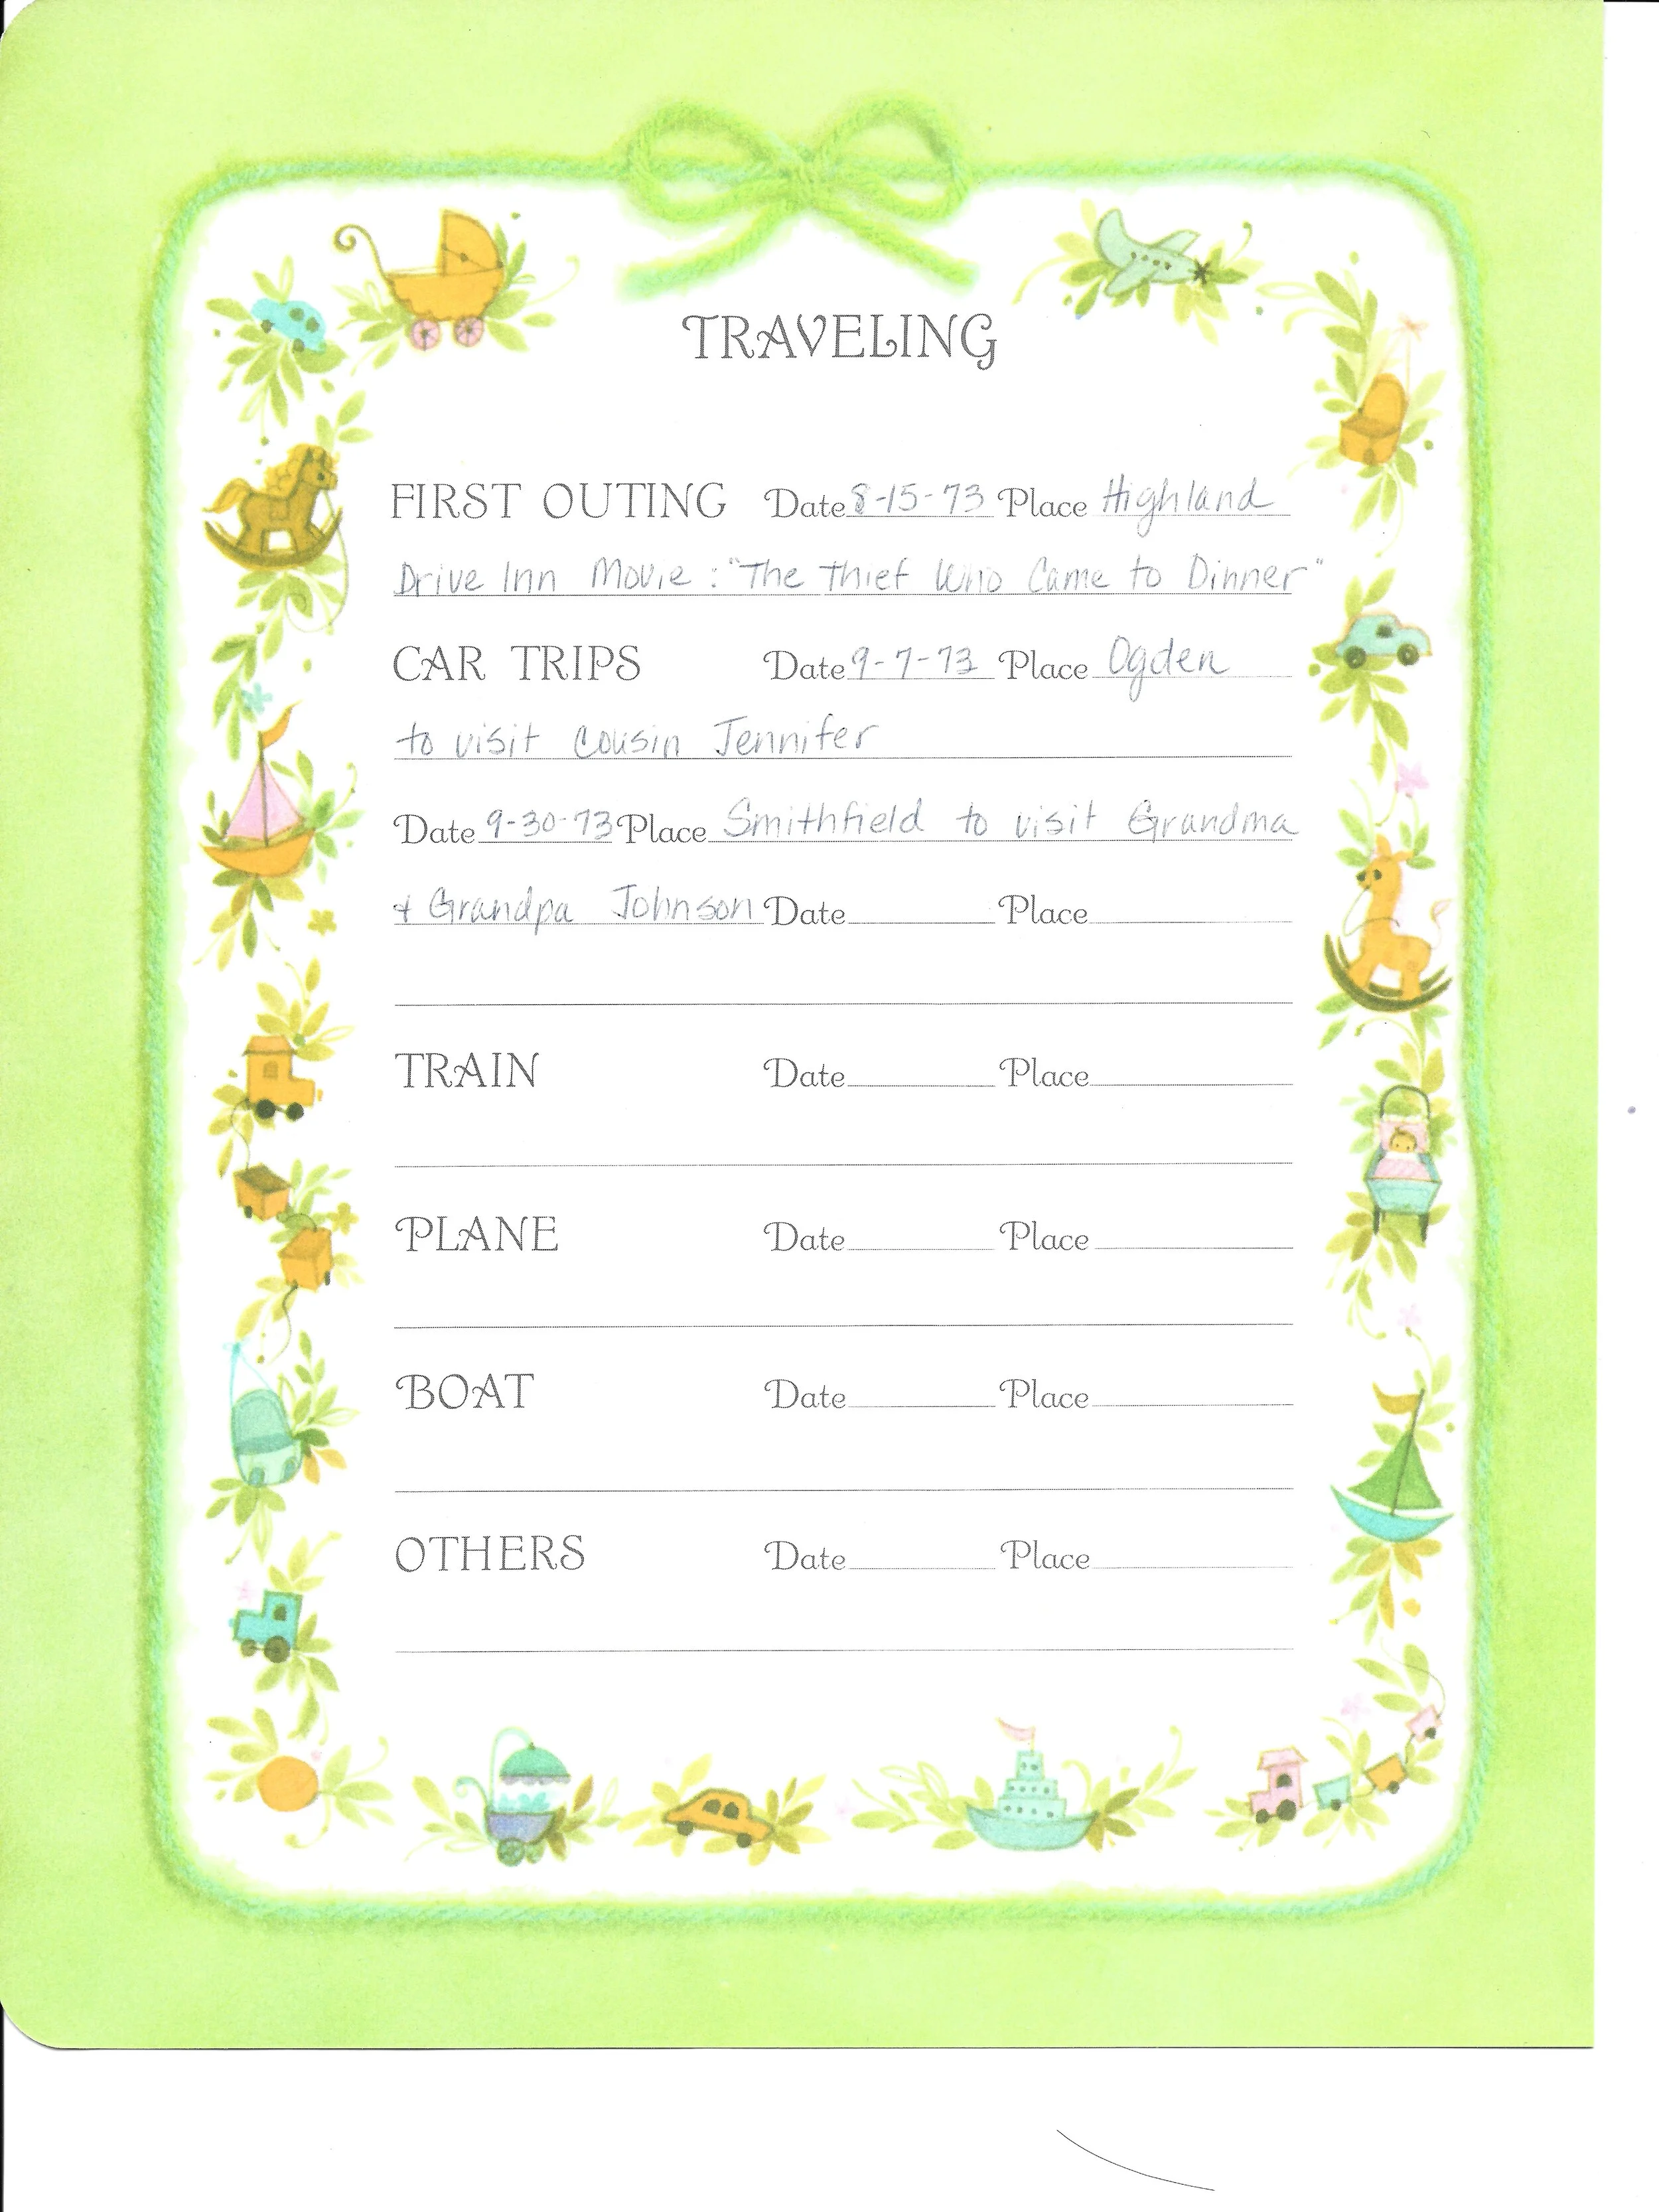 TRAVELING
FIRST OUTING Date 8-15-73 Place Highland
Drive Inn Movie : "The Thief Who Came to Dinner"
CAR TRIPS Date 9-7-73 Place Ogden
to visit Cousin Jennifer
Date 9-30-73 Place Smithfield to visit Grandma
& Grandpa Johnson Date Place
TRAIN Date Place
PLANE Date Place
BOAT Date Place
OTHERS Date Place